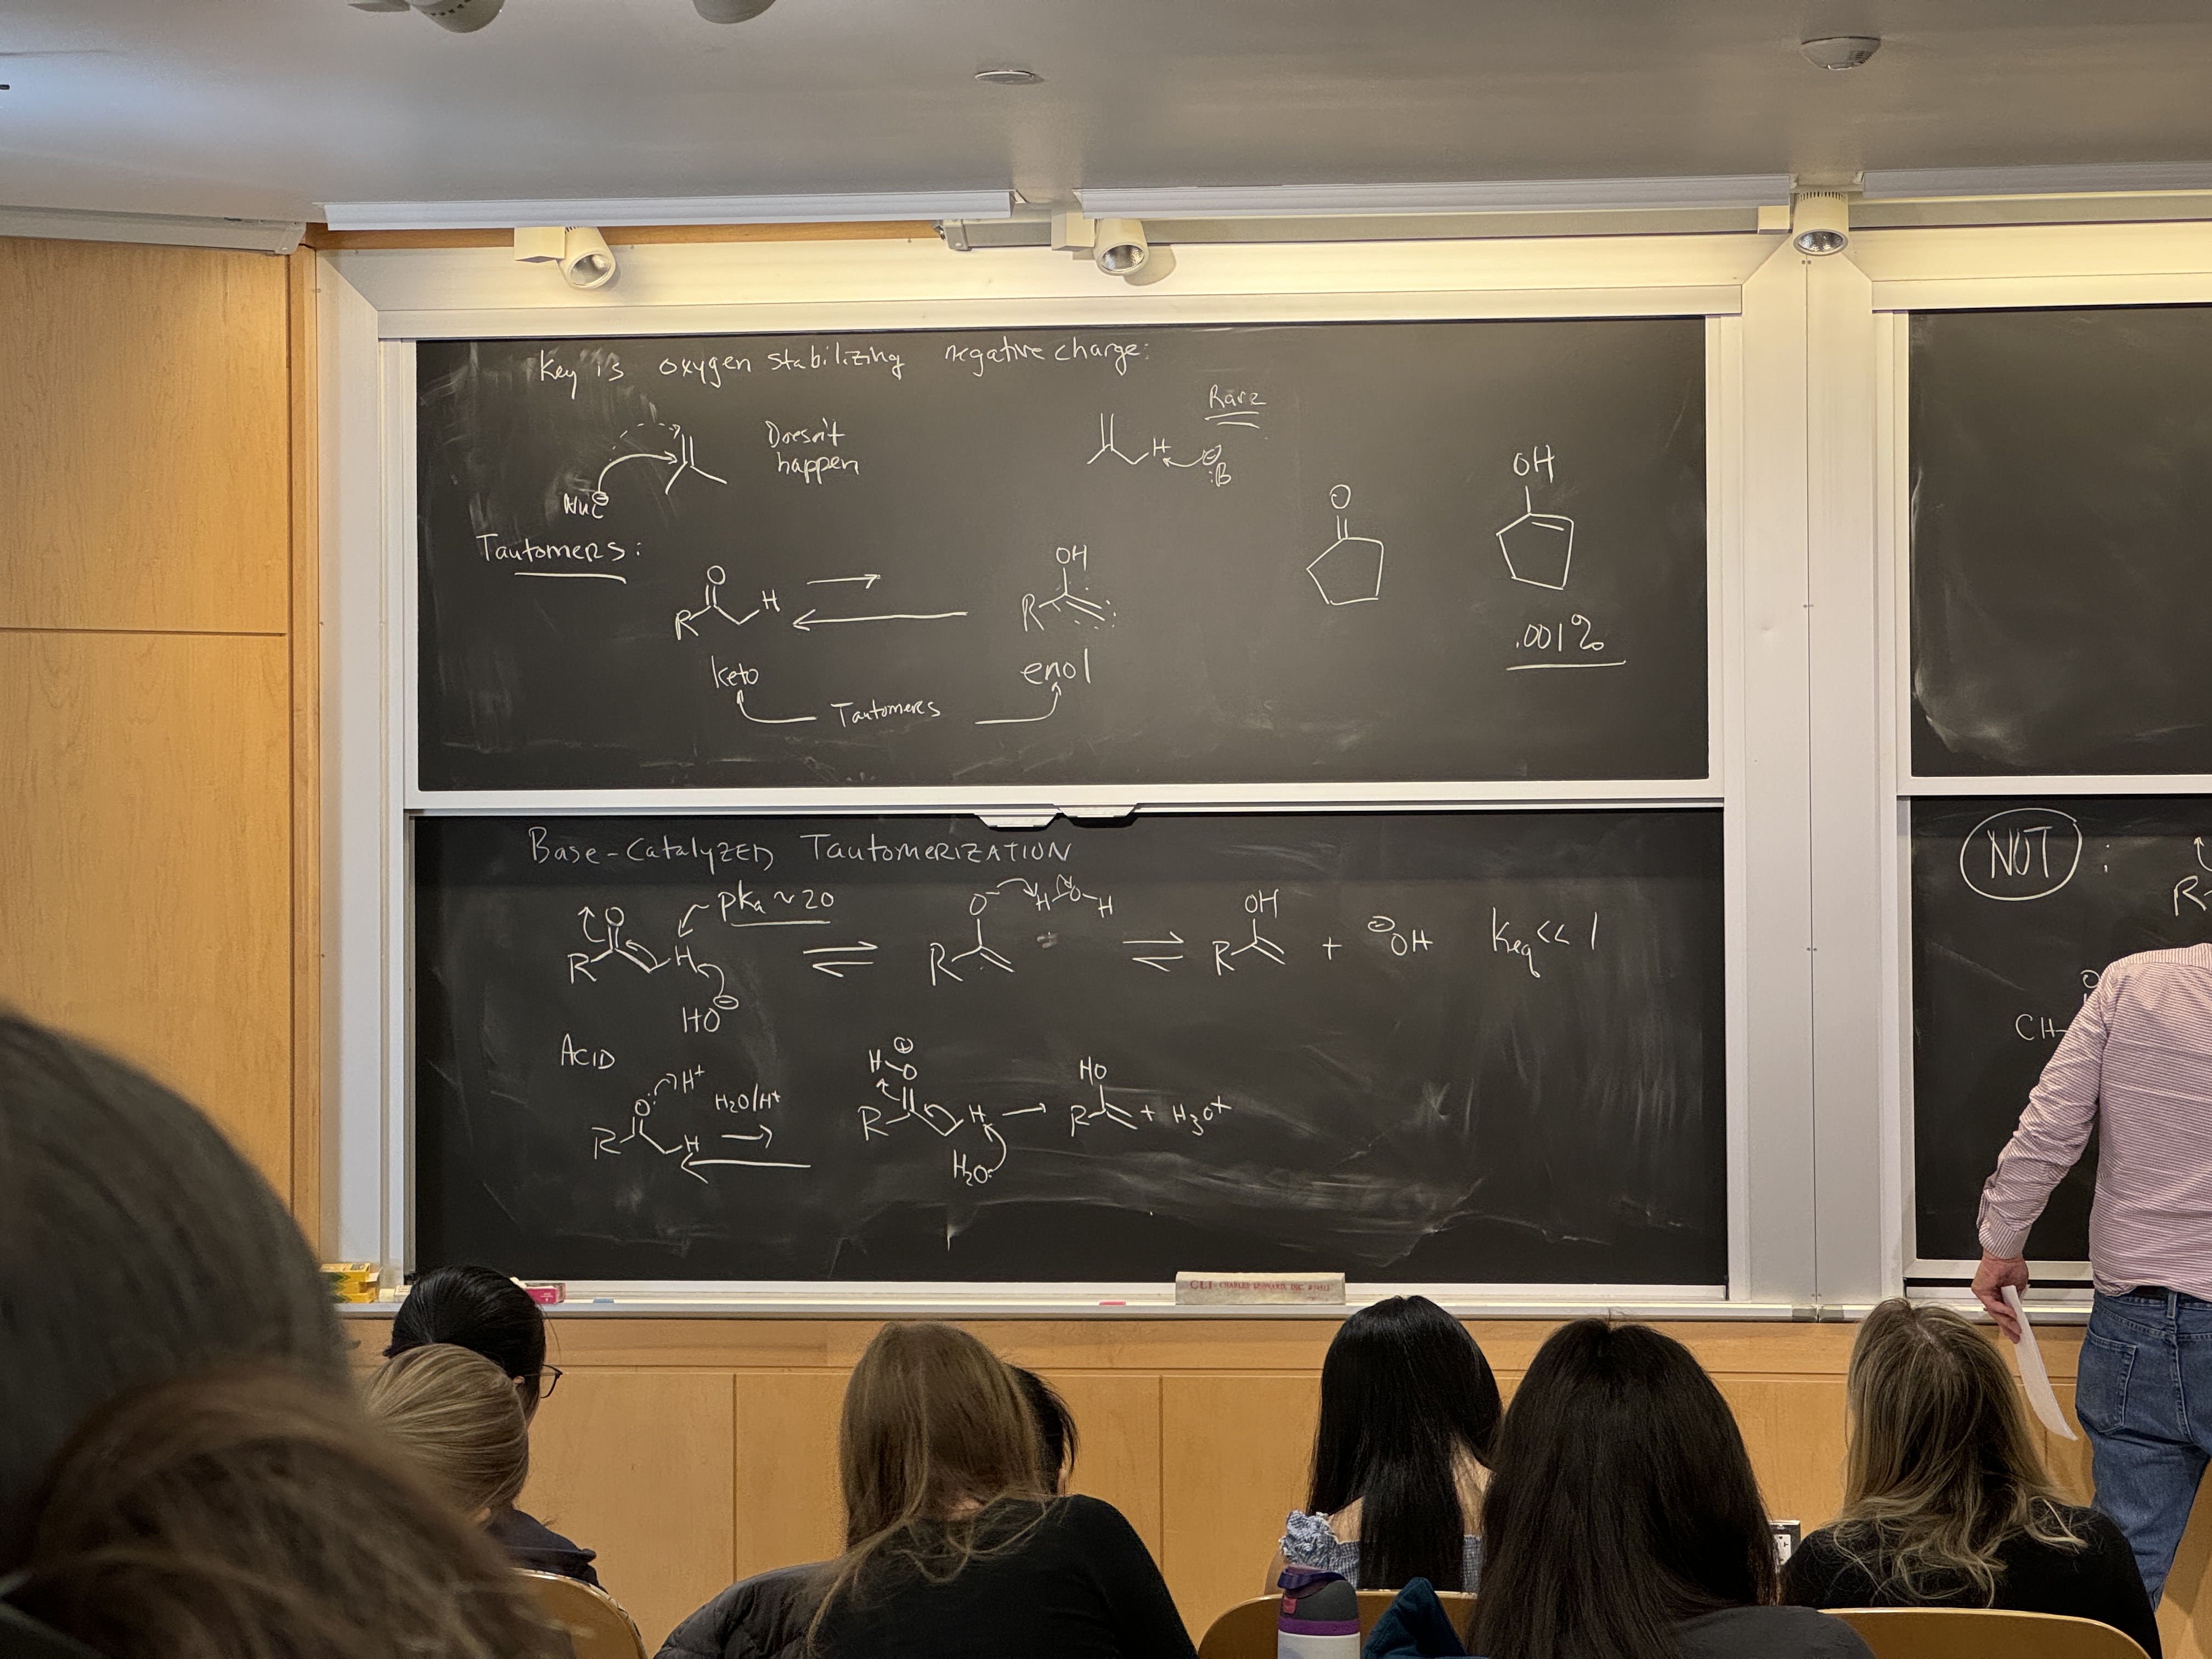 Key is oxygen stabilizing negative charge:
Nuc⊖
Doesn't
happen
H
⊖
:B
Rare
Tautomers:
O
R
H
OH
R
keto
enol
Tautomers
O
OH
.001%
Base-Catalyzed Tautomerization
O
R
H
pKa ~ 20
HO⊖
O⁻
R
H
O-H
OH
R
+
⊖OH
Keq << 1
Acid
O:
H+
R
H
H2O/H+
H
⊕
O
R
H
H2O:
HO
R
+ H3O+
NOT :
R
O
CH
CLI - CHARLES LEONARD, INC.